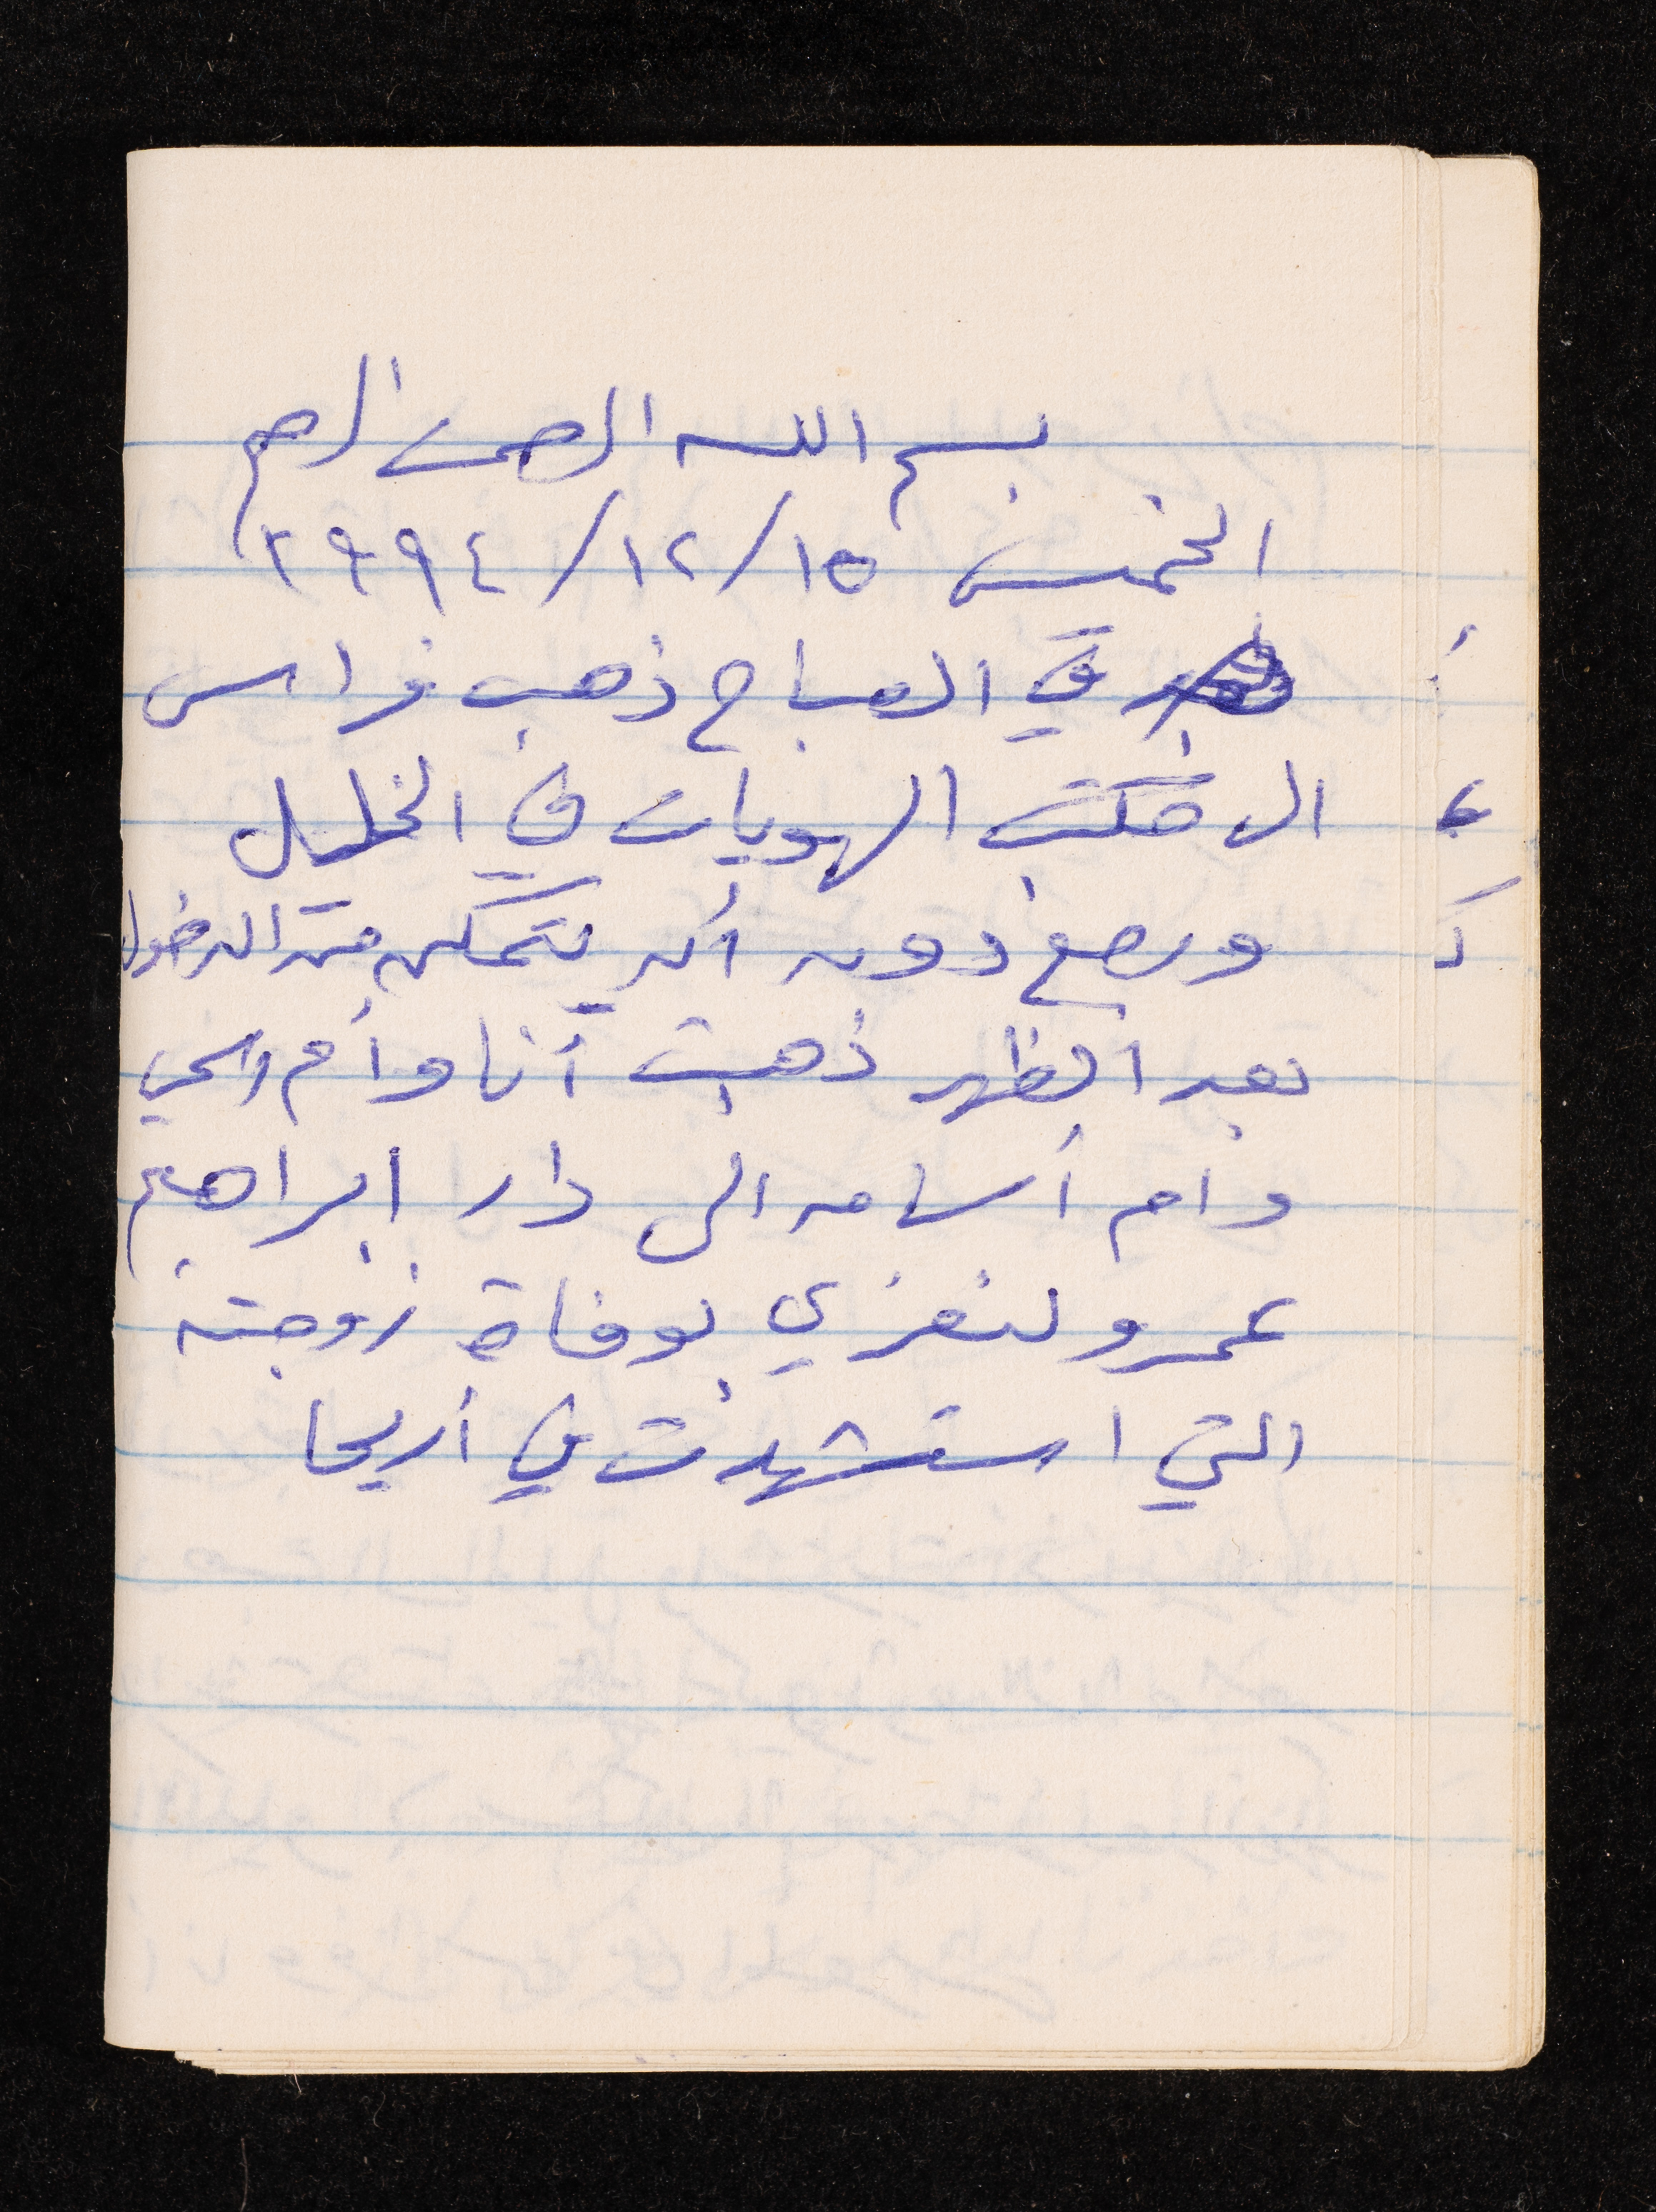 بسم الله الرحمن الرحيم
الخميس ١٥/١٢/١٩٩٤
في الصباح ذهب فراس
الى مكتب الهويات في الخليل
ورجع دون أن يتمكن من الدخول
بعد الظهر ذهبت أنا وأم راجي
وام أسامه الى دار ابراهيم
عمرو لنعزي بوفاة زوجته
التي استشهدت في أريحا